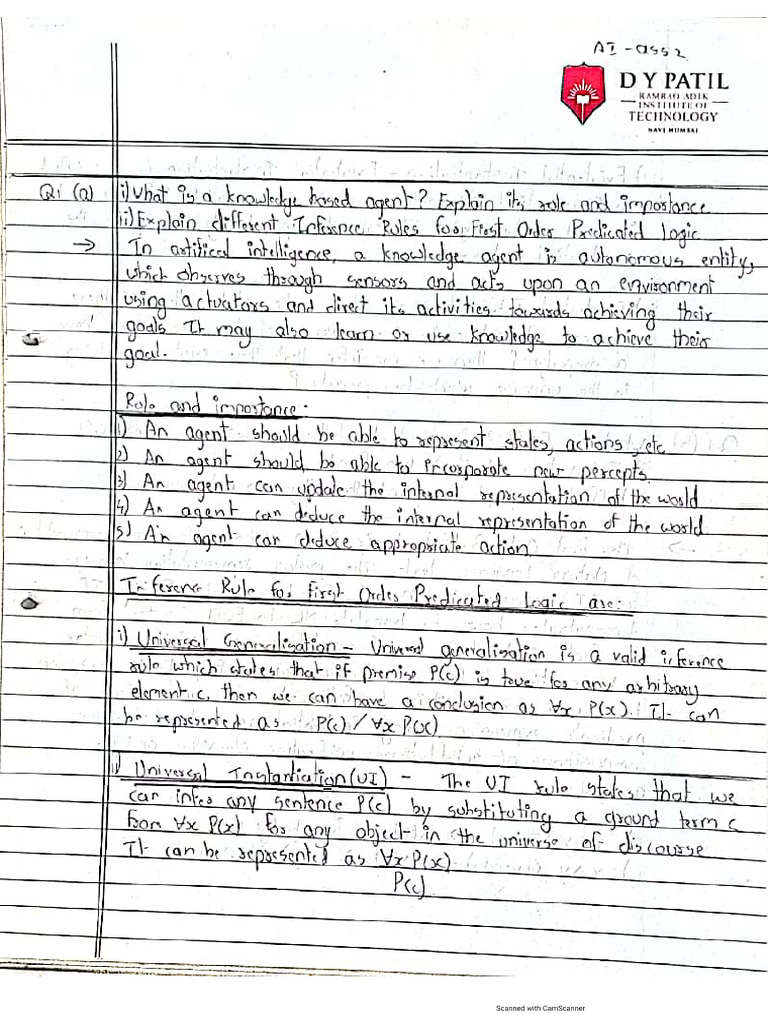 AI - ass 2
D Y PATIL
RAMRAO ADIK
INSTITUTE OF
TECHNOLOGY
NAVI MUMBAI
Q1 (a) i) What is a knowledge based agent? Explain its role and importance
ii) Explain different Inference Rules for First Order Predicated Logic
→ In artifical intelligence, a knowledge agent is autonomous entity,
which observes through sensors and acts upon an environment
using actuators and direct its activities towards achieving their
goals It may also learn or use knowledge to achieve their
goal.
Role and importance:
1) An agent should be able to represent states, actions, etc
2) An agent should be able to incorporate new percepts.
3) An agent can update the internal representation of the world
4) An agent can deduce the internal representation of the world
5) An agent can deduce appropriate action
Inference Rule for First Order Predicated Logic are:
i) Universal Generalisation - Universal generalisation is a valid inference
rule which states that if premise P(c) is true for any arbitrary
element c, then we can have a conclusion as ∀x P(x). It can
be represented as P(c) / ∀x P(x)
ii) Universal Instantiation (UI) - The UI rule states that we
can infer any sentence P(c) by substituting a ground term c
from ∀x P(x) for any object in the universe of discourse
It can be represented as ∀x P(x)
P(c)
Scanned with CamScanner